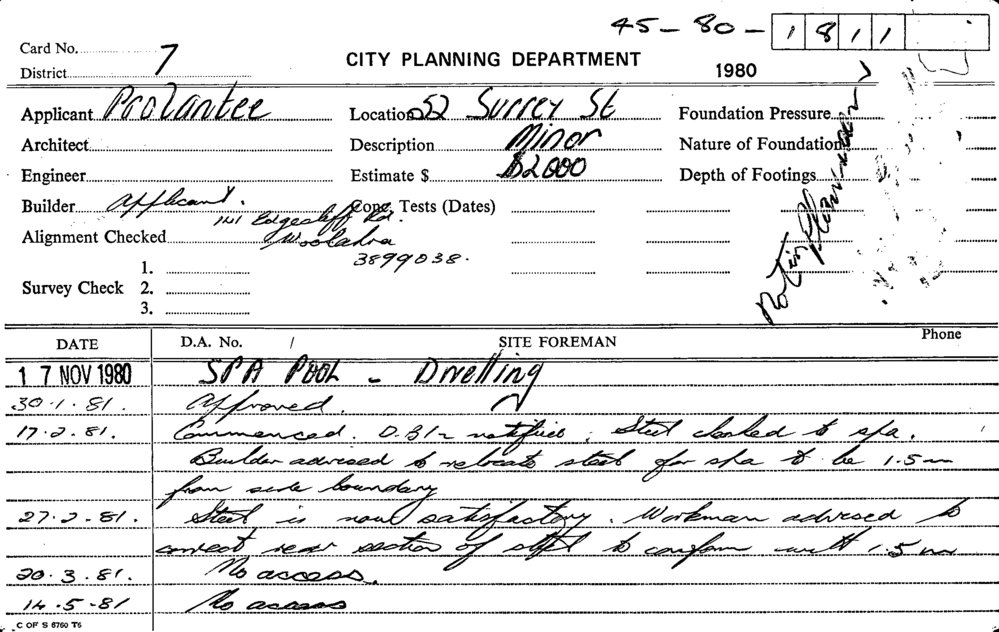 45 - 80 - 1811
Card No. 7
District
CITY PLANNING DEPARTMENT
1980
Applicant Prolantee Location 52 Surrey St Foundation Pressure
Architect Description Minor Nature of Foundation
Engineer Estimate $ $2000 Depth of Footings
Builder Applicant. Conc. Tests (Dates)
141 Edgecliff Rd.
Alignment Checked Woolahra
3899038.
1.
Survey Check 2.
3.
DATE D.A. No. / SITE FOREMAN Phone
17 NOV 1980 SPA POOL - Dwelling
30.1.81. Approved.
17.2.81. Commenced. notified. Steel checked to spa.
Builder advised to relocate steel for spa to be 1.5m
from side boundary
27.2.81. Steel is now satisfactory. Workman advised to
correct rear section of steel to conform with 1.5m
20.3.81. No access.
14.5.81 No access
C OF S 6760 T6